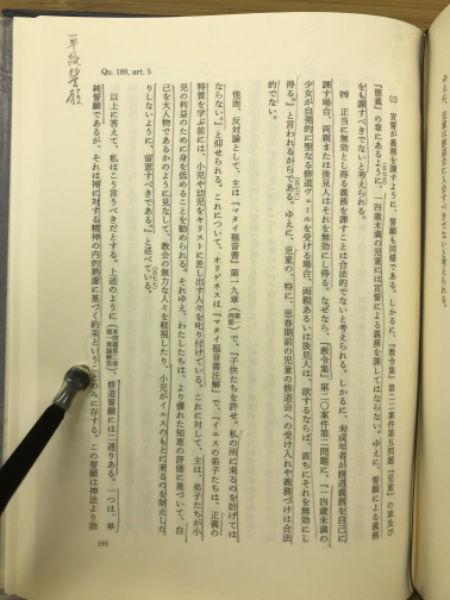 単純誓願
Qu. 189, art. 5
㈢ 宣誓が義務を課すように、誓願も同様である。しかるに、『教令集』第二二案件第五問題『児童』の章及び
『徳義』の章にあるように、一四歳未満の児童には宣誓による義務を課してはならない。ゆえに、誓願による義務
をも課すべきでないと考えられる。
㈣ 正当に無効とし得る義務を課すことは合法的でないと考えられる。しかるに、未成年者が修道義務を自己に
課す場合、両親または後見人はそれを無効にし得る。なぜなら、『教令集』第二〇案件第二問題に、「一四歳未満の
少女が自発的に聖なる修道ヴェールを受ける場合、両親あるいは後見人は、欲するならば、直ちにそれを無効にし
得る。」と言われるからである。ゆえに、児童の、特に、思春期前の児童の修道会への受け入れや義務づけは合法
的でない。
他面、反対論として、主は『マタイ福音書』第一九章で、「子供たちを許せ。私の所に来るのを妨げては
ならない。」と仰せられる。これについて、オリゲネスは『マタイ福音書注解』で、「イエスの弟子たちは、正義の
特質を学ぶ前には、小児や幼児をキリストに差し出す人々を叱り付けている。これに対して、主は、弟子たちが小
児の利益のために身を低めることを勧められる。それゆえ、わたしたちは、より優れた知恵の評価に基づいて、自
己を大人物であるかのように見なして、教会の無力な人々を軽視したり、小児がイエスのもとに来るのを制止した
りしないように、留意すべきである。」と述べている。
以上に答えて、私はこう謂うべきだとする。上述のように、修道誓願には二通りある。一つは、単
純誓願であるが、それは神に対する精神の内的熟慮に基づく約束ということのみに存する。この誓願は神法より効